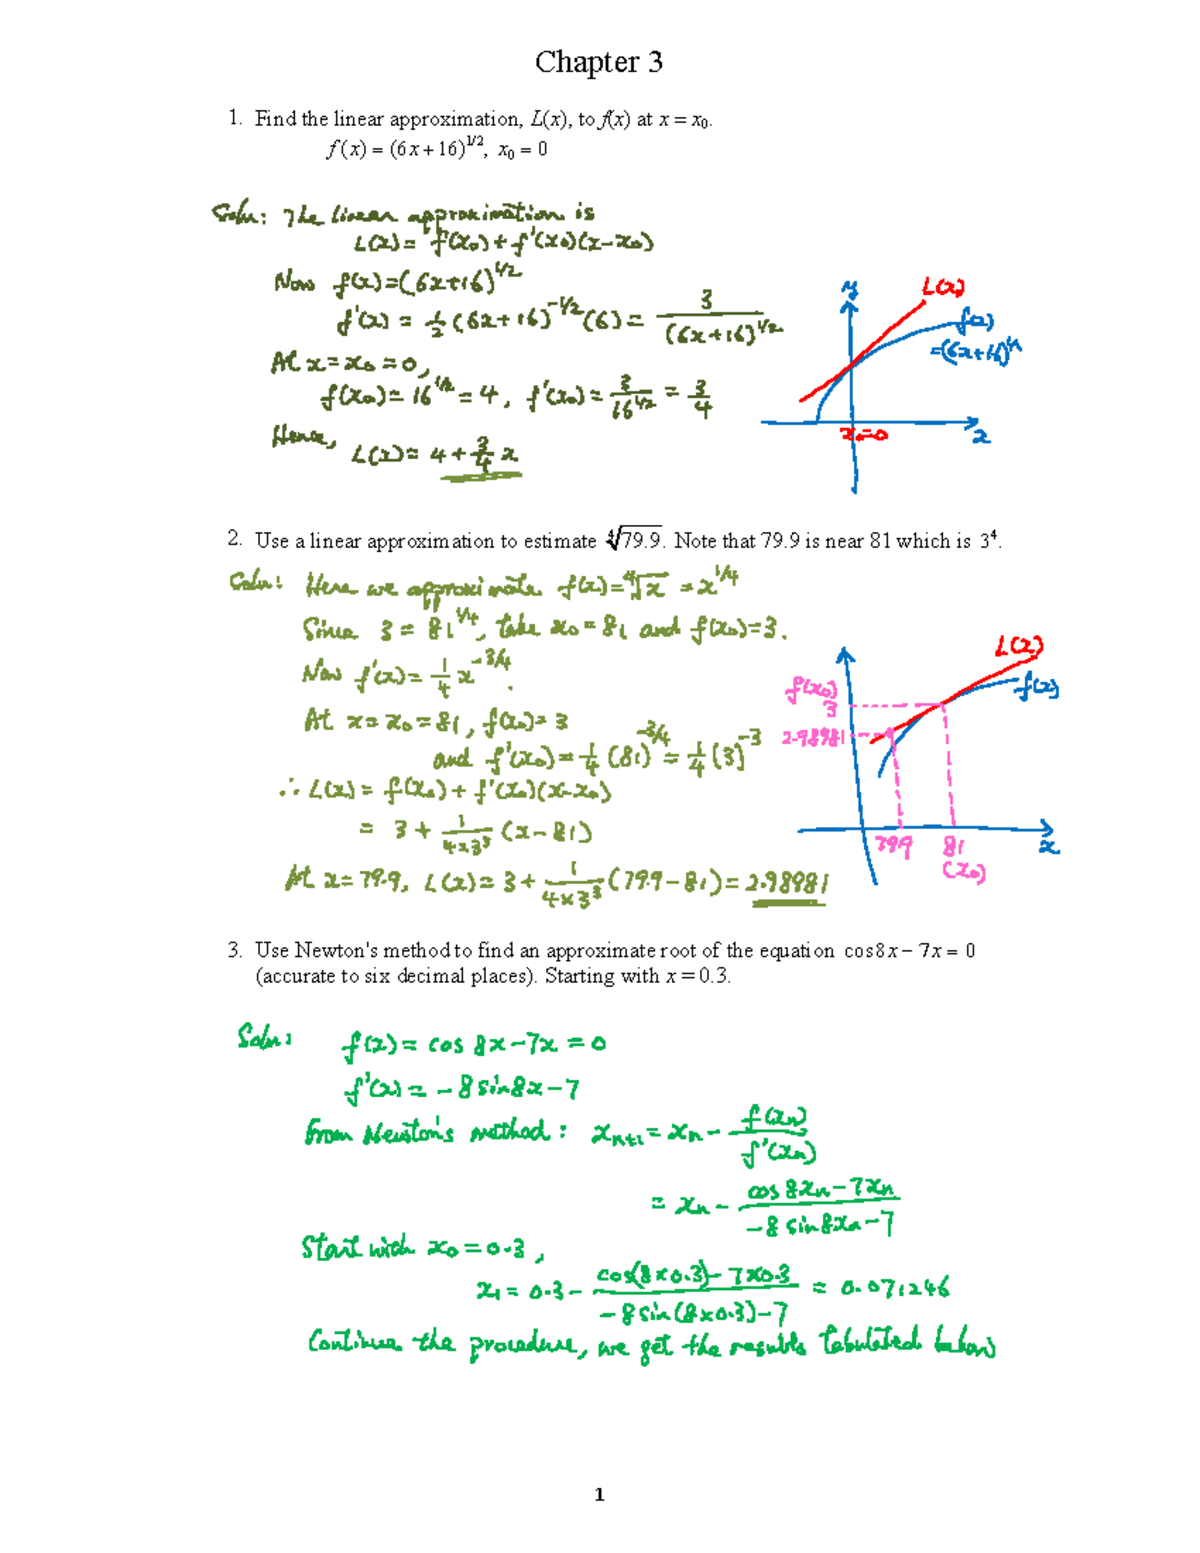 Chapter 3
1. Find the linear approximation, L(x), to f(x) at x = x₀.
f(x) = (6x + 16)^1/2, x₀ = 0
Soln: The linear approximation is
L(x) = f(x₀) + f'(x₀)(x-x₀)
Now f(x) = (6x+16)^1/2
f'(x) = 1/2 (6x+16)^-1/2 (6) = 3/(6x+16)^1/2
At x = x₀ = 0,
f(x₀) = 16^1/2 = 4, f'(x₀) = 3/16^1/2 = 3/4
Hence,
L(x) = 4 + 3/4 x
y
L(x)
f(x)
=(6x+16)^1/2
x₀=0
x
2. Use a linear approximation to estimate ∜79.9. Note that 79.9 is near 81 which is 3⁴.
Soln: Here we approximate f(x) = ∜x = x^1/4
Since 3 = 81^1/4, take x₀ = 81 and f(x₀) = 3.
Now f'(x) = 1/4 x^-3/4.
At x = x₀ = 81, f(x₀) = 3
and f'(x₀) = 1/4 (81)^-3/4 = 1/4 (3)^-3
∴ L(x) = f(x₀) + f'(x₀)(x-x₀)
= 3 + 1/(4×3³) (x-81)
At x = 79.9, L(x) = 3 + 1/(4×3³) (79.9-81) = 2.98981
L(x)
f(x)
f(x₀)
3
2.98981
79.9
81
(x₀)
x
3. Use Newton's method to find an approximate root of the equation cos8x − 7x = 0
(accurate to six decimal places). Starting with x = 0.3.
Soln: f(x) = cos 8x - 7x = 0
f'(x) = -8 sin8x - 7
From Newton's method: xₙ₊₁ = xₙ - f(xₙ)/f'(xₙ)
= xₙ - (cos 8xₙ - 7xₙ)/(-8 sin8xₙ - 7)
Start with x₀ = 0.3,
x₁ = 0.3 - (cos(8×0.3) - 7×0.3)/(-8 sin(8×0.3) - 7) = 0.071246
Continue the procedure, we get the results tabulated below
1